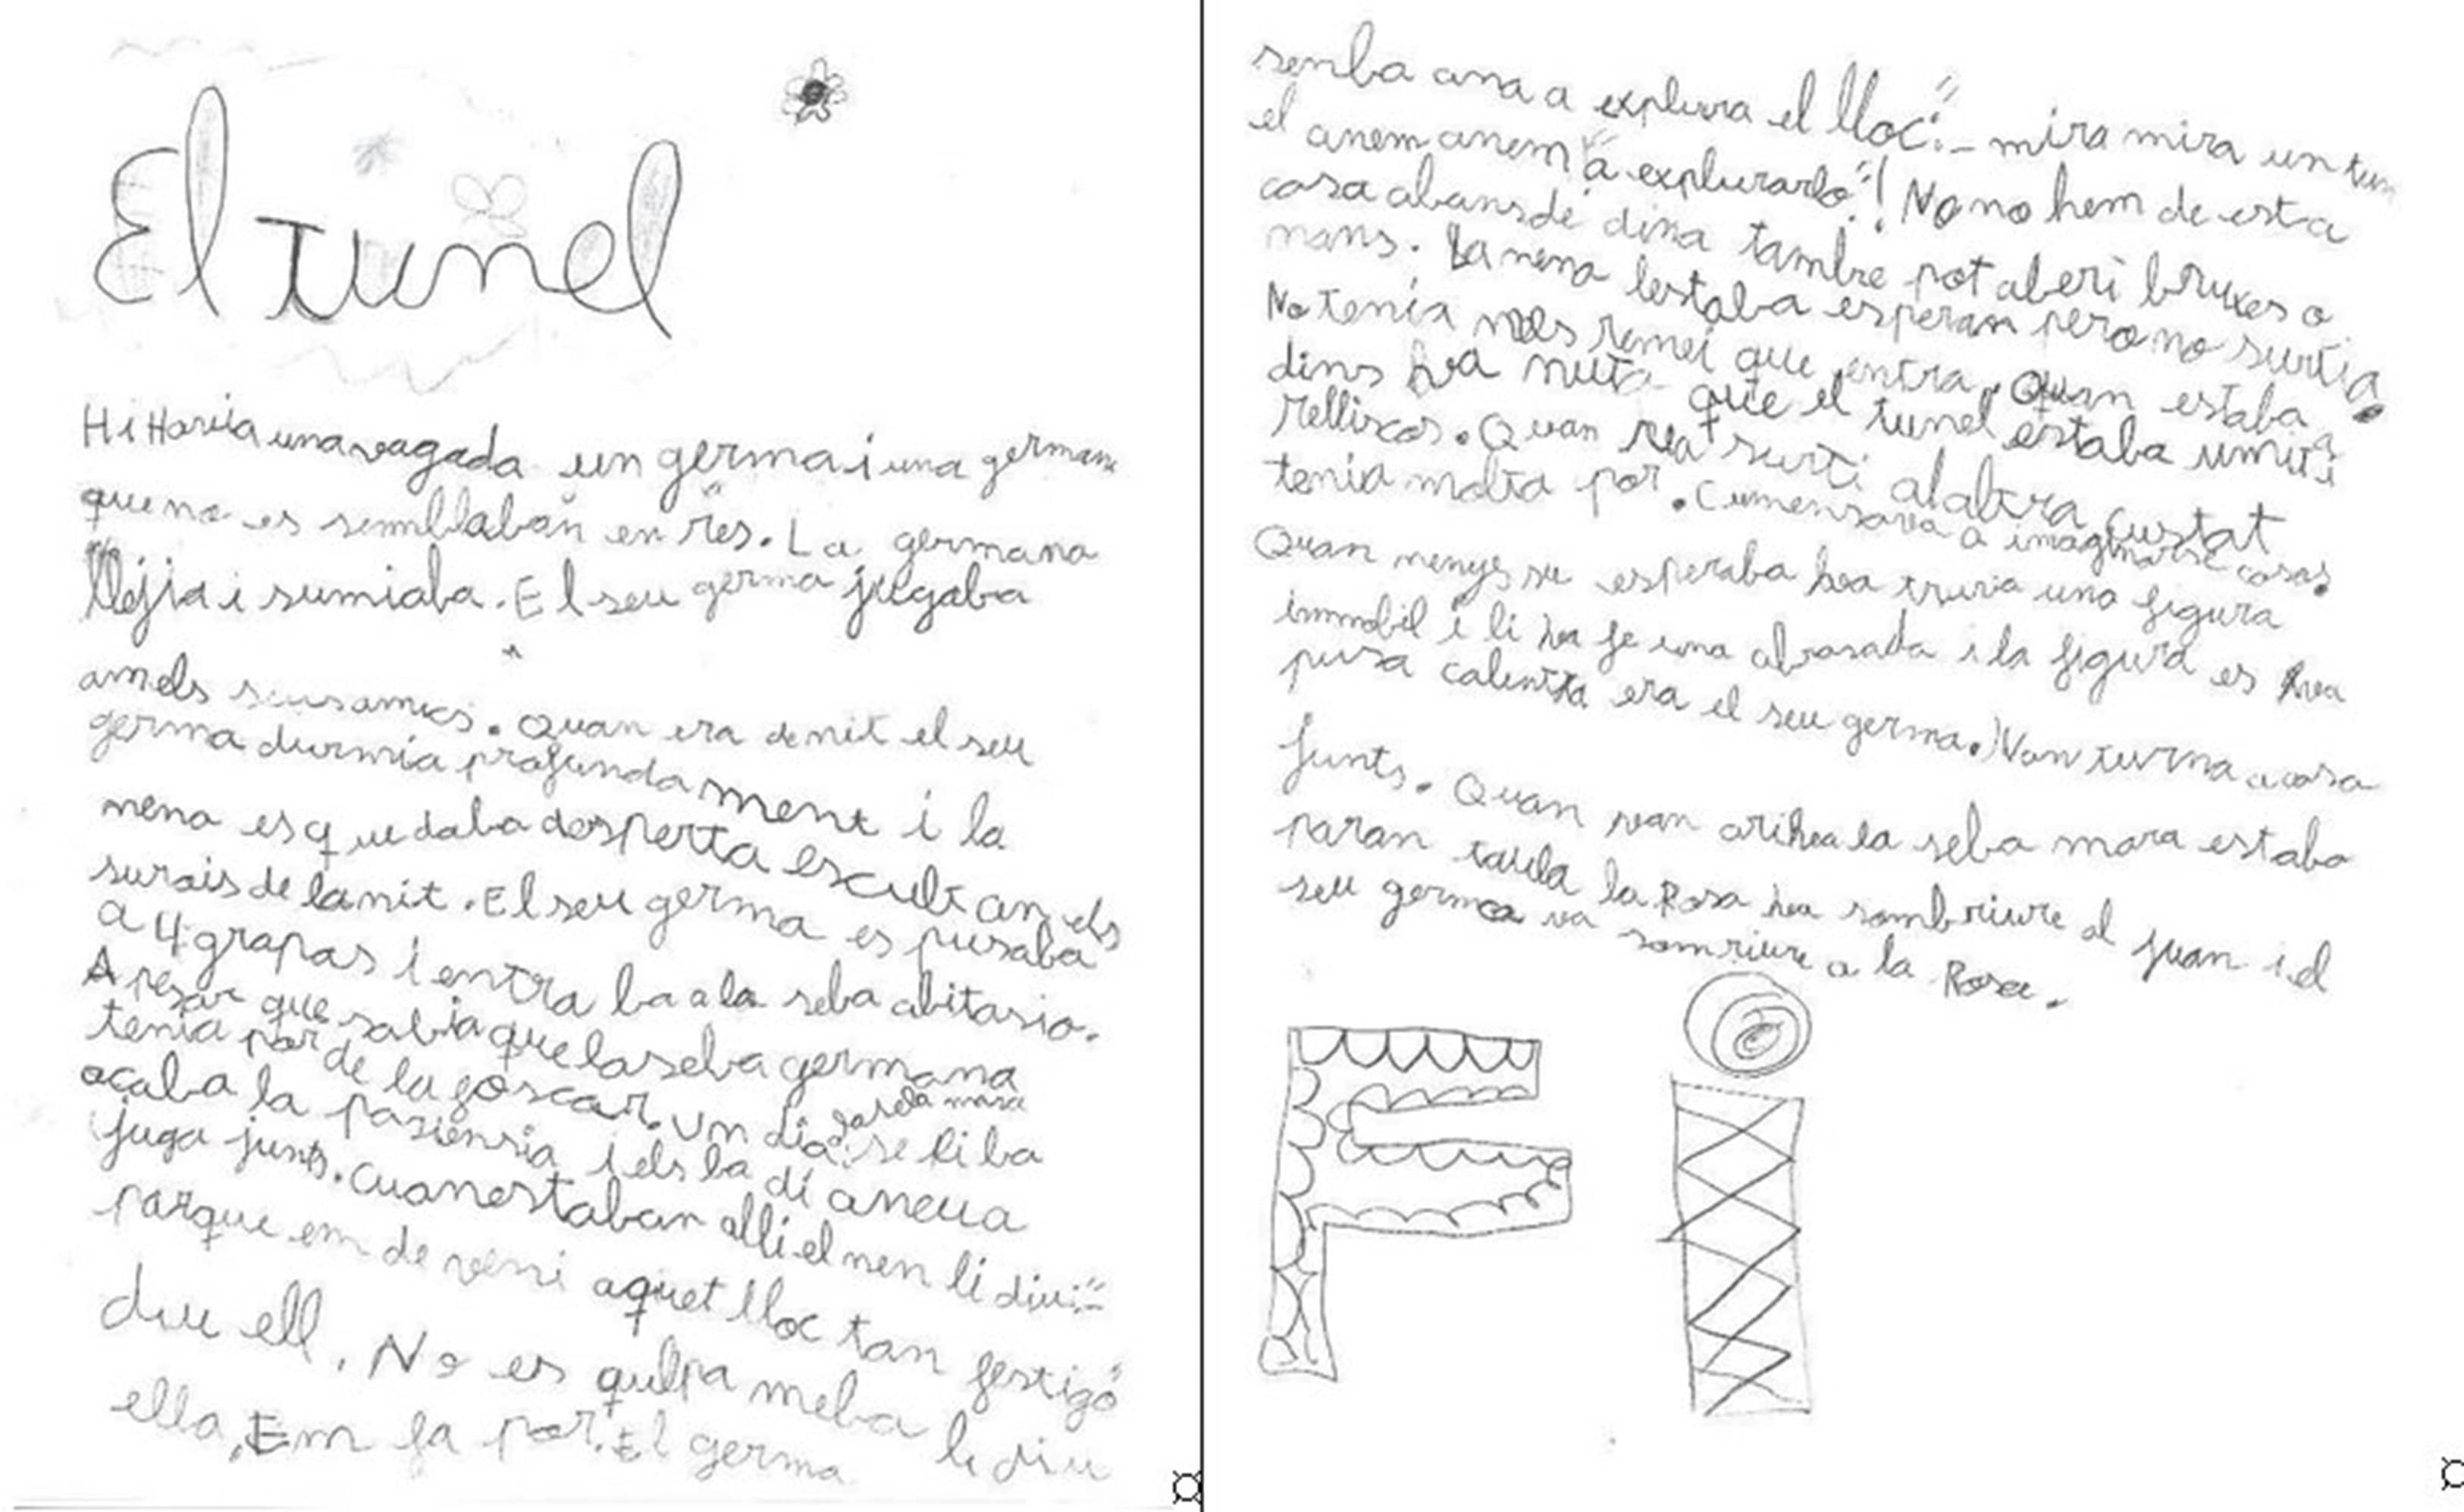 El tunel
Hi Havia una vagada un germa i una germana
que no es semblaban en res. La germana
llejia i sumiaba. El seu germa jugaba
amels seus amics. Quan era de nit el seu
germa durmia profundament i la
nena es quedaba desperta escultan els
surois de la nit. El seu germa es pusaba
a 4 grapas i entra ba a la seba abitasio.
A pesar que sabia que la seba germana
tenia por de la foscar. Un dia a la seba mara se li ba
acaba la pasiensia i els ba di aneu a
juga junts. Cuan estaban alli el nen li diu:"-
parque em de veni aquet lloc tan fastigó"
diu ell. No es qulpa meba li diu
ella, Em fa por. El germa
senba ana a explura el lloc":- mira mira un tun
el anem anem "a explurarlo"! No no hem de esta
casa abans de dina tambe pot aberi bruxes o
nans. La nena lestaba esperan pero no surtia.
No tenia mes remei que entra. Quan estaba a
dins ba nuta que el tunel estaba umit i
relliscos. Quan va surti alaltra custat
tenia molta por. Cumensava a imaginarse cosas.
Quan menys su esperaba ba truva una figura
immobil i li ba fe una abrasada i la figura es ba
pusa calenta era el seu germa. Van turna a casa
junts. Quan van ariba la seba mara estaba
paran taula la Rosa ba sombriure al juan i el
seu germa va somriure a la Rosa.
Fi